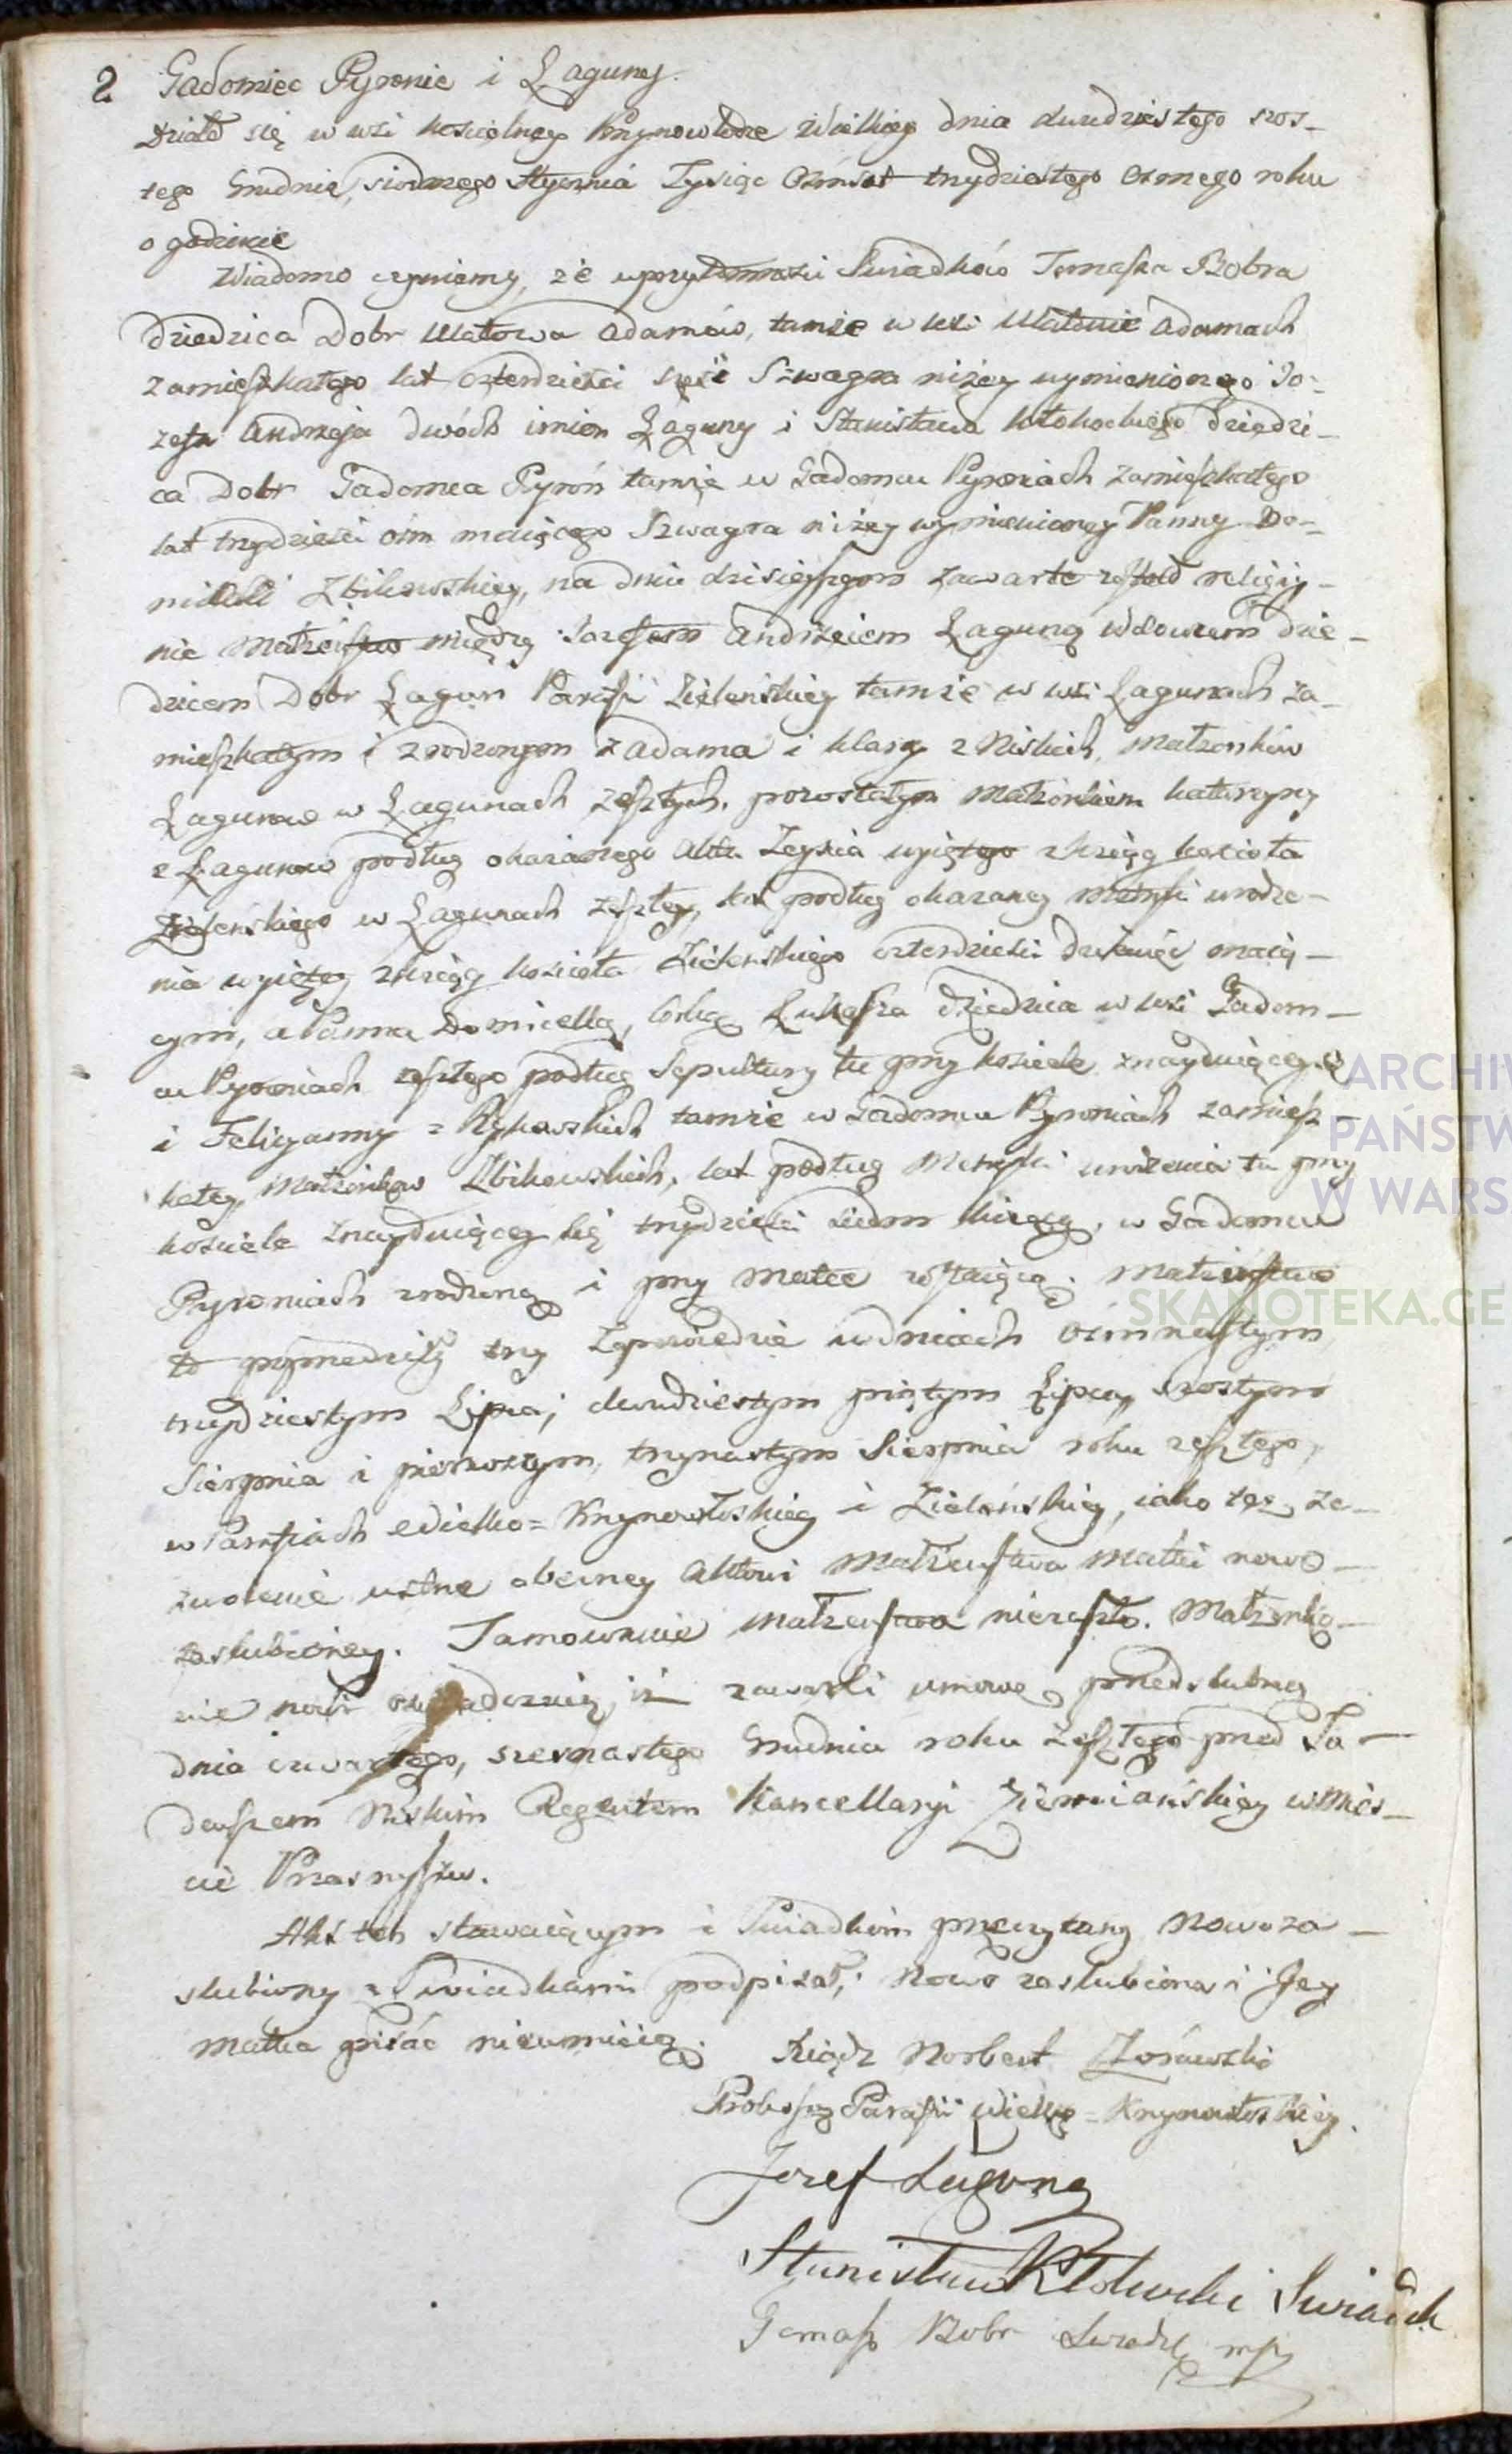 2 Gadomiec Pyronie i Łaguny.
Działo się w wsi kościelney Krzynowłodze Wielkiey dnia dwudziestego szos-
tego Grudnia, siodmego Stycznia Tysiąc Ośmset trzydziestego osmego roku
o godzinie
Wiadomo czyniemy, że w przytomności Swiadków Tomasza Bobra
Dziedzica Dobr Ułatowa Adamów, tamże w wsi Ułatowie Adamach
zamieszkałego lat czterdzieści sześć Szwagra niżey wymienionego Jo-
zefa Andrzeja dwóch imion Łaguny i Stanisława Kłokockiego Dziedzi-
ca Dobr Gadomca Pyroń tamże w Gadomcu Pyroniach zamieszkałego
lat trzydzieści ośm maiącego Szwagra niżey wymienioney Panny Do-
micelli Zbikowskiey, na dniu dzisieyszym zawarte zostało religiy-
nie Małżeństwo między Jozefem Andrzeiem Łaguną Wdowcem dzie-
dzicem Dobr Łagun Parafii Zieleńskiey tamże w wsi Łagunach za-
mieszkałym i zrodzonym z Adama i Klary z Niskich, Małżonków
Łagunow w Łagunach zeszłych, pozostałym Małżonkiem Katarzyny
z Łagunow podług okazanego Aktu Zeyścia wyiętego z księg kościoła
Zieleńskiego w Łagunach zeszłey, lat podług okazaney Metryki urodze-
nia wyiętey z księg kościoła Zieleńskiego czterdzieści dziewięć maią-
cym, a Panną Domicellą, córką Łukasza Dziedzica w wsi Gadom-
cu Pyroniach zeszłego podług Sepultury tu przy kościele znayduiącey się
i Felicyanny z Rykowskich tamże w Gadomcu Pyroniach zamiesz-
kałey Małżonkow Zbikowskich, lat podług Metryki urodzenia tu przy
kościele znayduiącey się trzydzieści siedm liczącą, w Gadomcu
Pyroniach zrodzoną i przy Matce zostaiącą. Małżeństwo
to poprzedziły trzy Zapowiedzie w dniach ośmnastym,
trzydziestym Lipca; dwudziestym piątym Lipca, szostym
Sierpnia i pierwszym, trzynastym Sierpnia roku zeszłego,
w Parafiach Wielko=Krzynowłoskiey i Zieleńskiey, iako też ze-
zwolenie ustne obecney Aktowi Małżeństwa Matki nowo-
zaslubioney. Tamowanie Małżeństwa niezaszło. Małżonko-
wie nowi oświadczaią, iż zawarli umowę przedslubną
dnia czwartego, szesnastego Grudnia roku zeszłego przed Ta-
deuszem Niskim Regentem Kancellaryi Ziemiańskiey w Mieś-
cie Przasnyszu.
Akt ten stawaiącym i Swiadkom przeczytany Nowoza-
slubiony z Swiadkami podpisał; Nowo zaslubiona i Jey
Matka pisać nieumieią. Xiądz Norbert Zórawski
Proboszcz Parafii Wielko=Krzynowłoskiey.
Jozef Łaguna
Stanisław Kłokocki Swiadek
Tomasz Bobr Swiadek mp
ARCHIW
PAŃSTW
W WARS
SKANOTEKA.GE